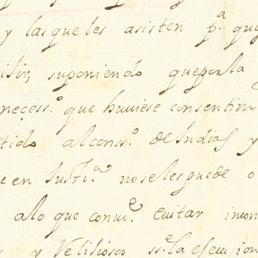 y las que les asisten p.ª que
suponiendo que por la
necess.º que huviese consentim
tido al cons.º de Indias y
e en Justi.ª no se les puede o
a lo que conv.e evitar incon
y Relixioso s.re la